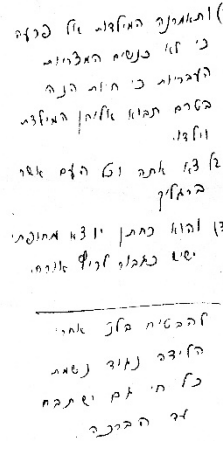 ותאמרנה המילדות אל פרעה
כי לא כנשים המצריות
העבריות כי חיות הנה
בטרם תבוא אליהן המילדת
וילדו.
צא אתה וכל העם אשר
ברגליך
והוא כחתן יוצא מחופתו
ישיש כגבור לרוץ אורח.
להבטיח בלנ אחרי
הלידה נגוד נשמת
כל חי גם ישתבח
עד הברכה.